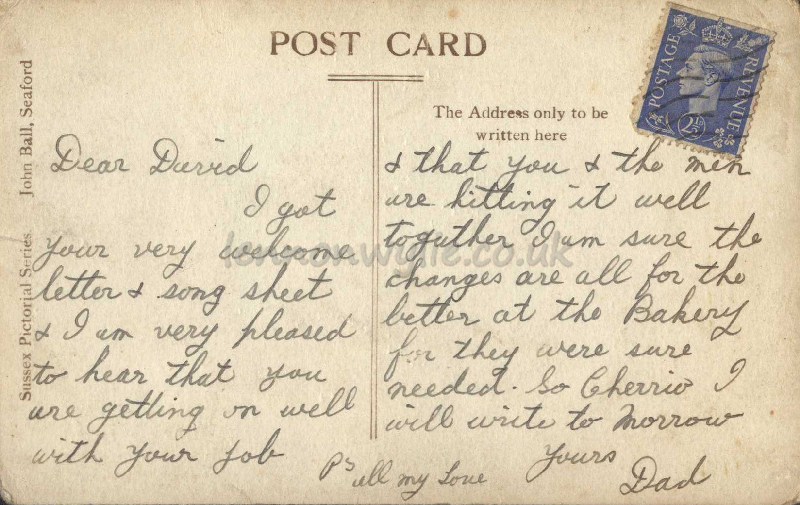 POST CARD
POSTAGE
REVENUE
2½D
Sussex Pictorial Series. John Ball, Seaford
The Address only to be
written here
Dear David
I got
your very welcome
letter & song sheet
& I am very pleased
to hear that you
are getting on well
with your job
& that you & the men
are hitting it well
togather I am sure the
changes are all for the
better at the Bakery
for they were sure
needed. So Cherrio I
will write to Morrow
Yours
Dad
Ps all my Love